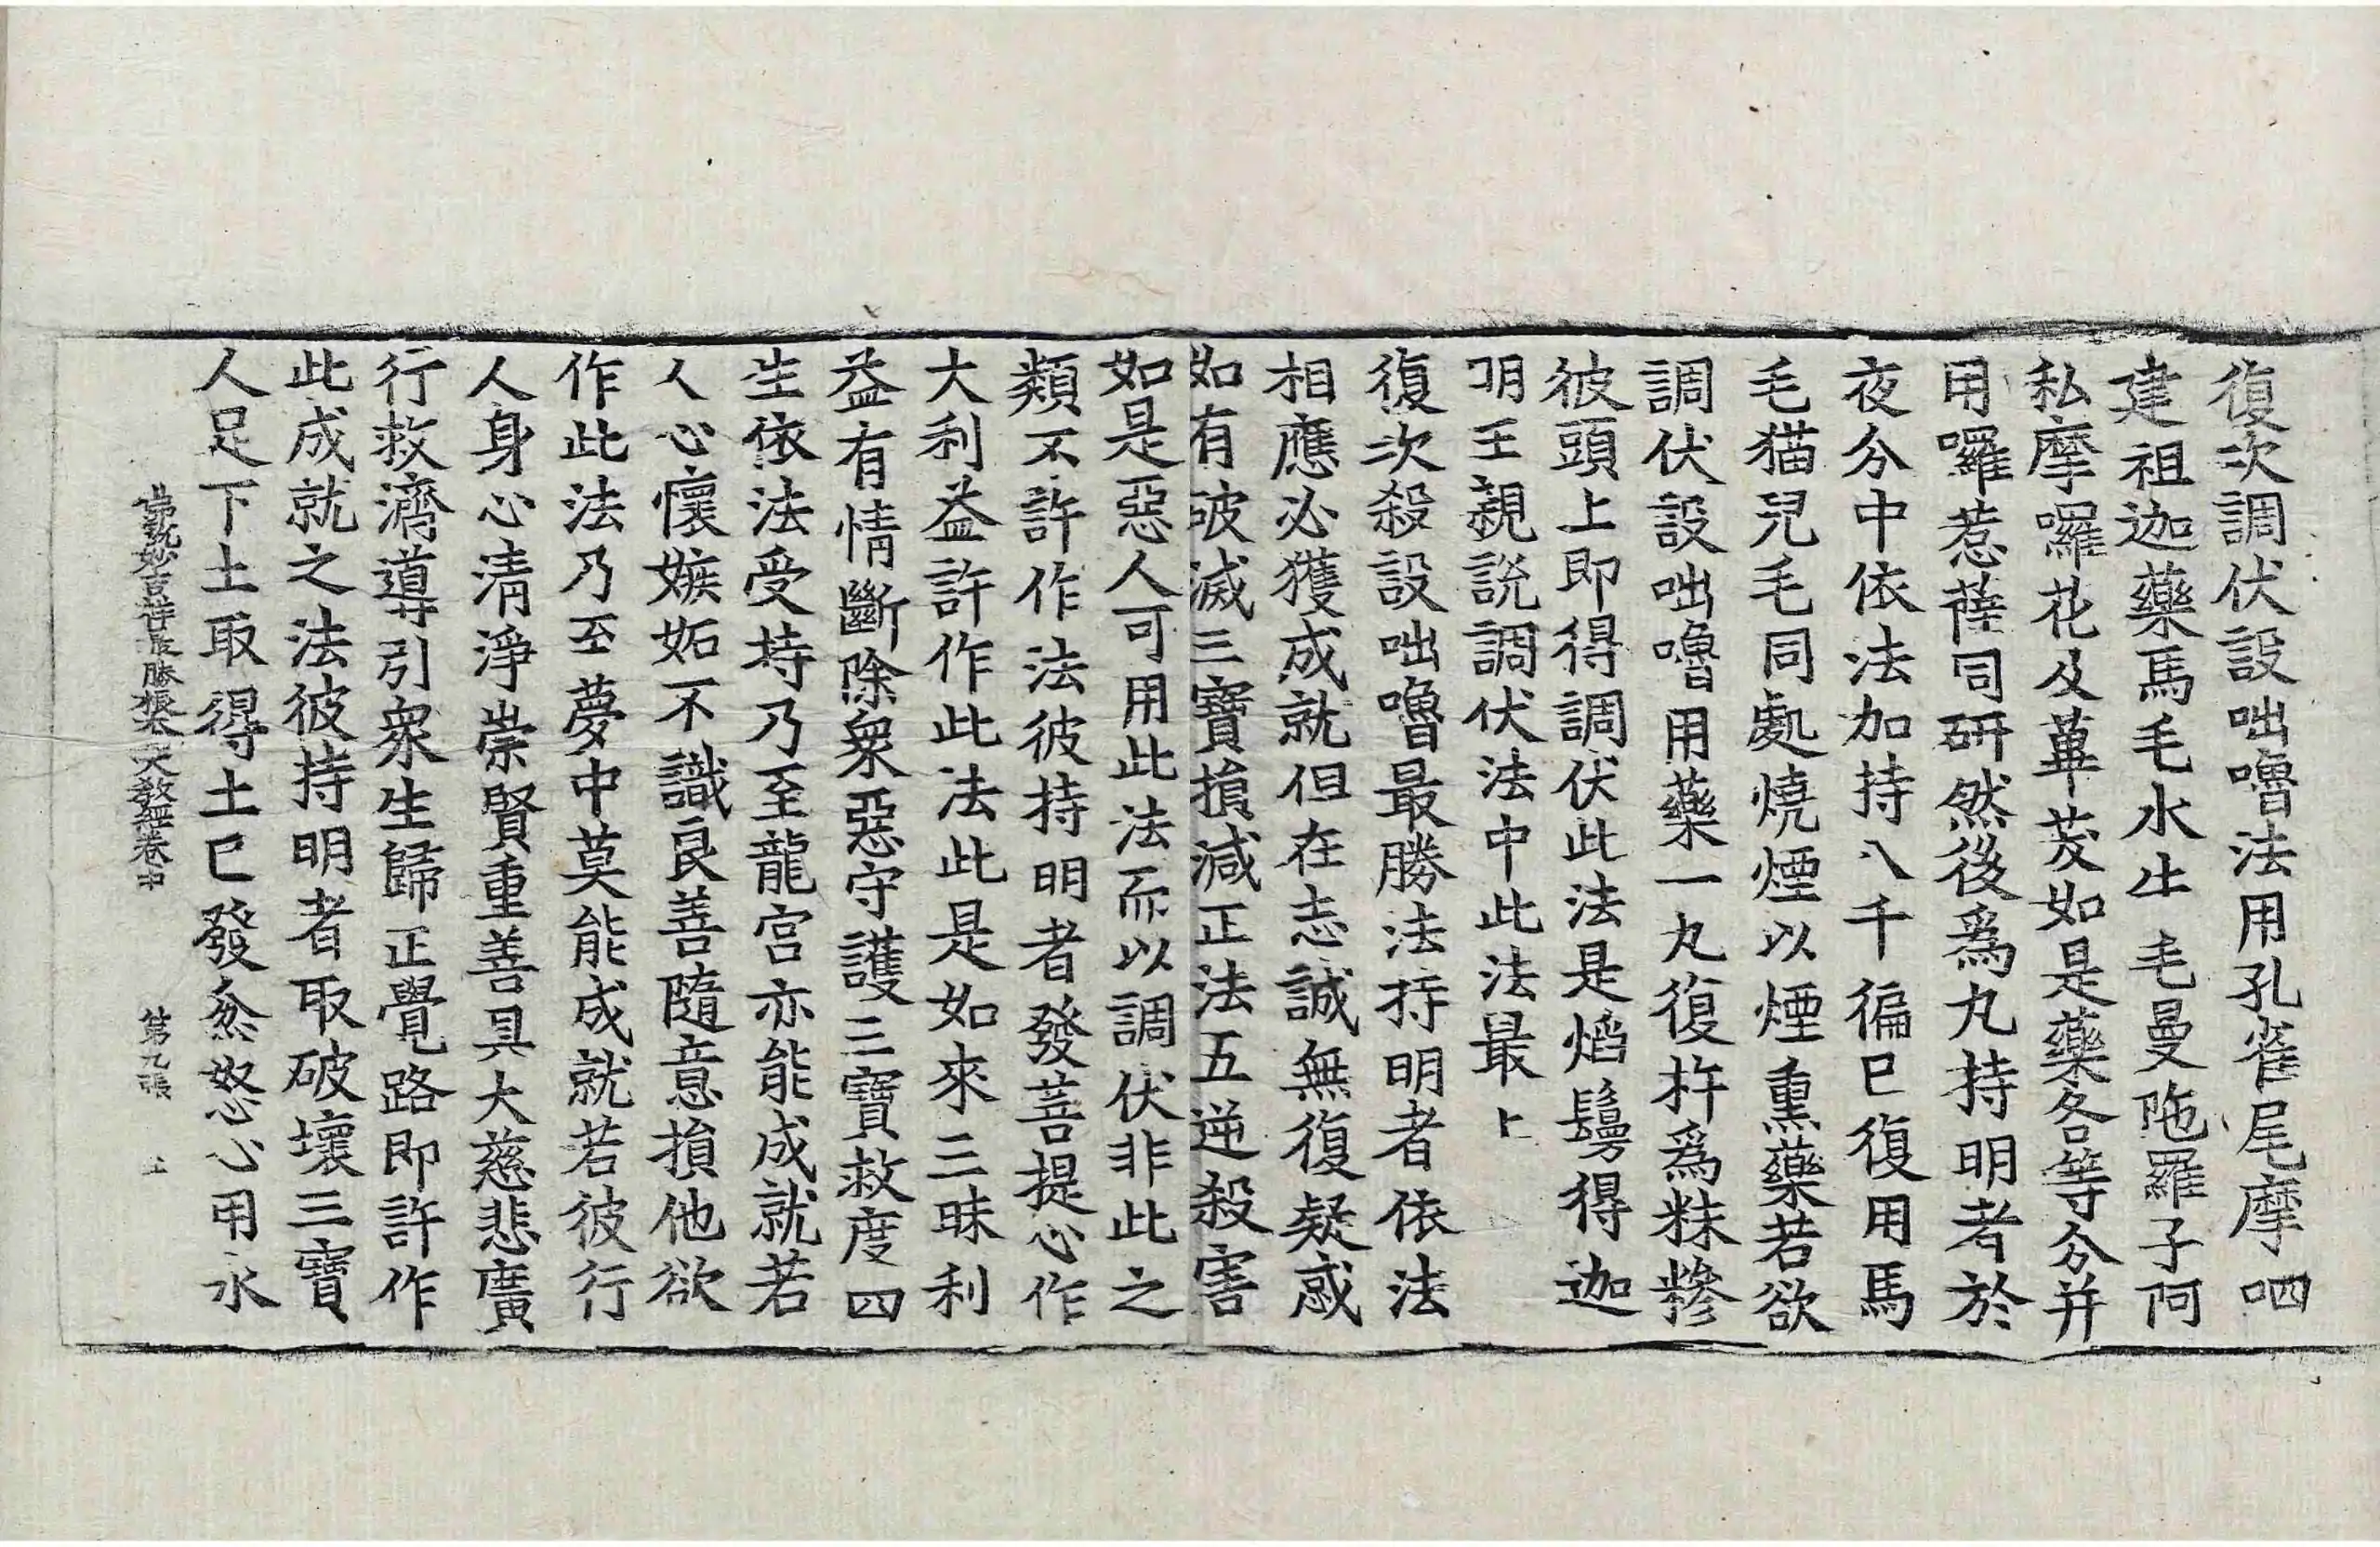 復次調伏設咄嚕法用孔雀尾摩呬
建祖迦藥馬毛水牛毛曼陁羅子阿
私摩囉花及蓽茇如是藥各等分并
用囉惹薩同研然後爲丸持明者於
夜分中依法加持八千徧巳復用馬
毛猫兒毛同處燒煙以煙熏藥若欲
調伏設咄嚕用藥一丸復杵爲粖糝
彼頭上即得調伏此法是焰鬘得迦
明王親說調伏法中此法最上
復次殺設咄嚕最勝法持明者依法
相應必獲成就但在志誠無復疑惑
如有破滅三寶損減正法五逆殺害
如是惡人可用此法而以調伏非此之
類不許作法彼持明者發菩提心作
大利益許作此法此是如來三昧利
益有情斷除衆惡守護三寶救度四
生依法受持乃至龍宮亦能成就若
人心懷嫉妬不識良善隨意損他欲
作此法乃至夢中莫能成就若彼行
人身心清淨崇賢重善具大慈悲廣
行救濟導引衆生歸正覺路即許作
此成就之法彼持明者取破壞三寶
人足下土取得土巳發忿怒心用水
佛說妙吉祥最勝根本大教經卷中 第九張